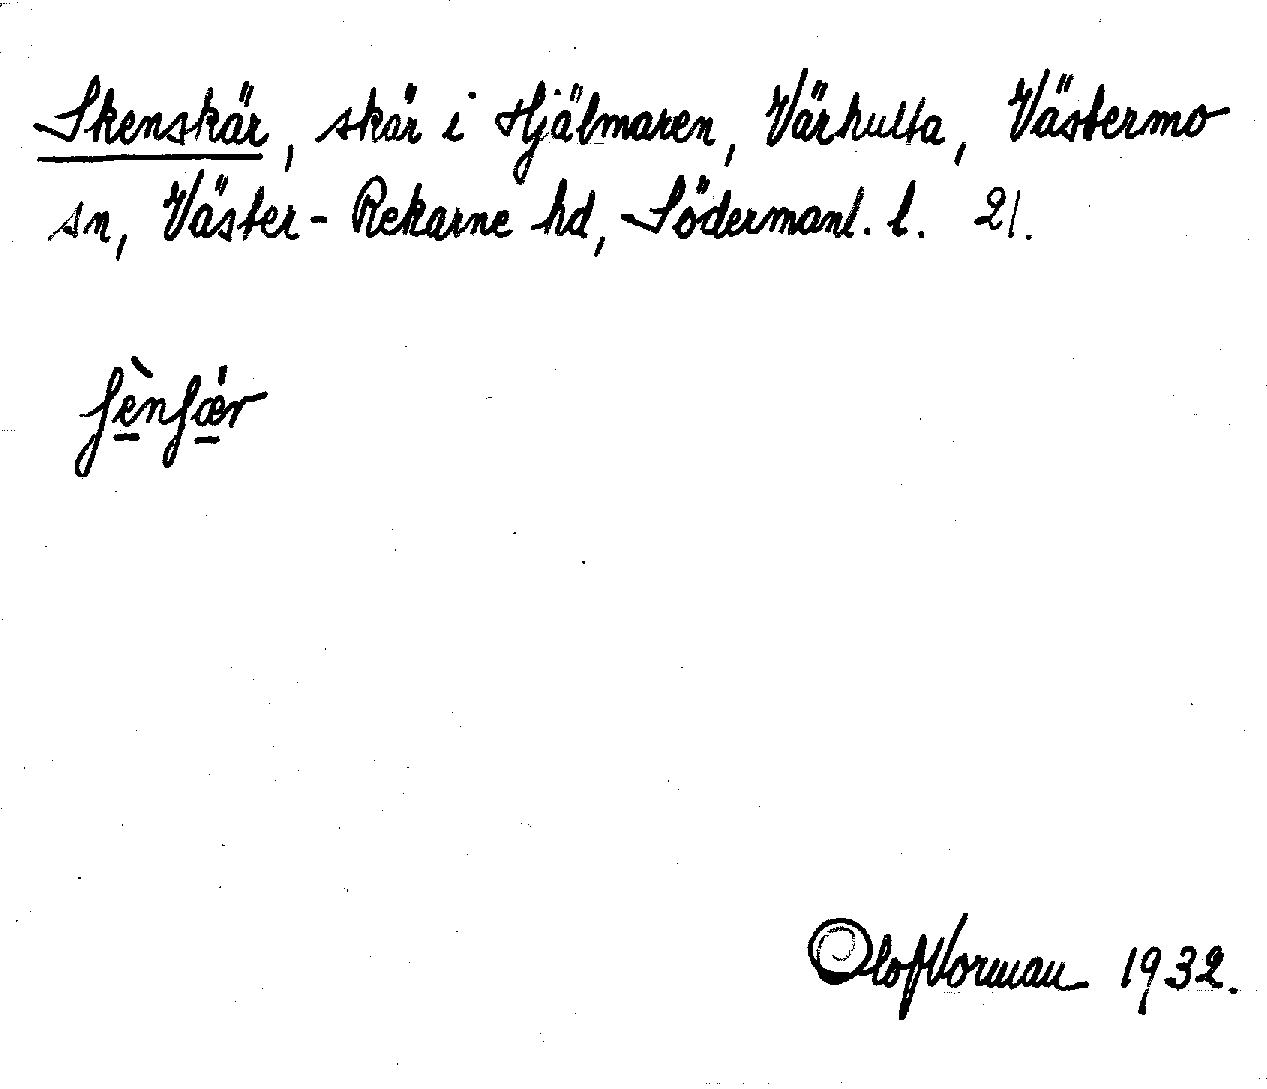 Skenskär, skär i Hjälmaren, Värhulta, Västermo
sn, Väster-Rekarne hd, Södermanl. l. 21.
ʃènʃæ̀r
Olof Norman 1932.